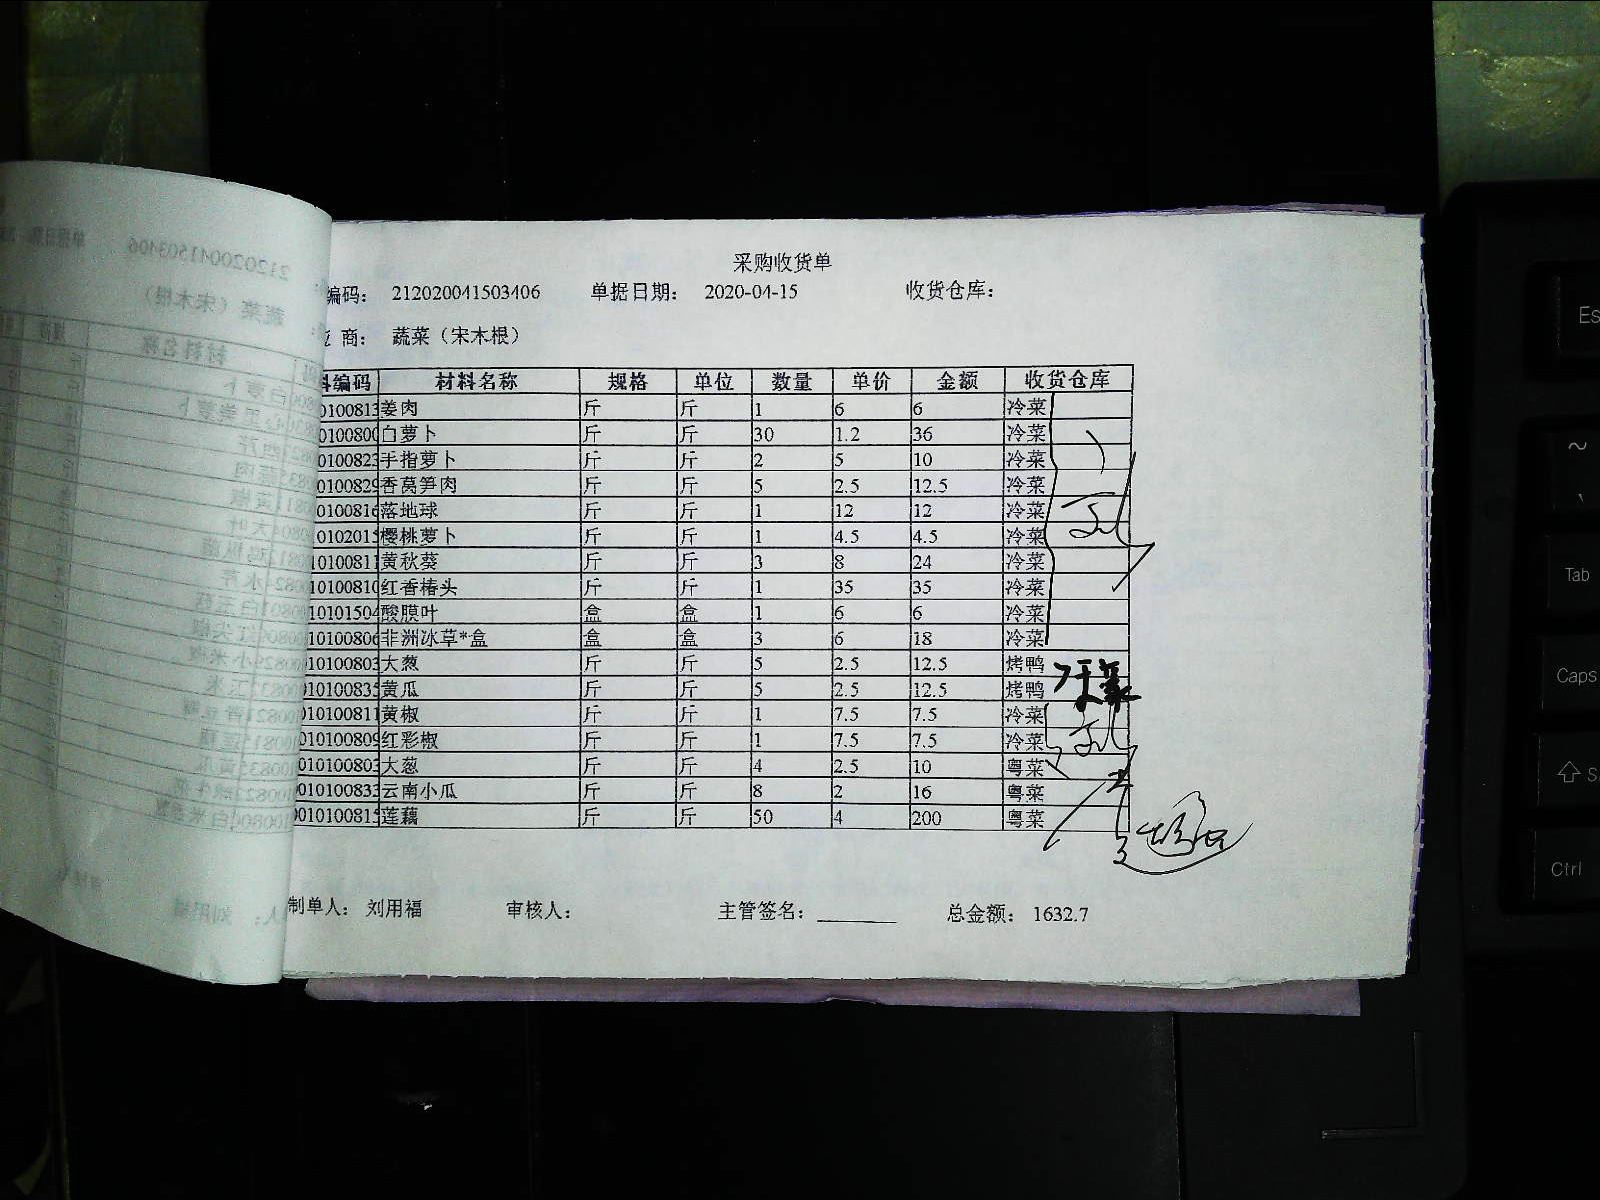 采购收货单
编码: 212020041503406 单据日期: 2020-04-15 收货仓库:
应 商: 蔬菜（宋木根）
料编码 材料名称 规格 单位 数量 单价 金额 收货仓库
0100813 姜肉 斤 斤 1 6 6 冷菜
0100800 白萝卜 斤 斤 30 1.2 36 冷菜
0100823 手指萝卜 斤 斤 2 5 10 冷菜
0100829 香莴笋肉 斤 斤 5 2.5 12.5 冷菜
0100816 落地球 斤 斤 1 12 12 冷菜
0102015 樱桃萝卜 斤 斤 1 4.5 4.5 冷菜
10100811 黄秋葵 斤 斤 3 8 24 冷菜
10100810 红香椿头 斤 斤 1 35 35 冷菜
10101504 酸膜叶 盒 盒 1 6 6 冷菜
10100806 非洲冰草*盒 盒 盒 3 6 18 冷菜
10100803 大葱 斤 斤 5 2.5 12.5 烤鸭
010100835 黄瓜 斤 斤 5 2.5 12.5 烤鸭
010100811 黄椒 斤 斤 1 7.5 7.5 冷菜
010100809 红彩椒 斤 斤 1 7.5 7.5 冷菜
010100803 大葱 斤 斤 4 2.5 10 粤菜
0010100833 云南小瓜 斤 斤 8 2 16 粤菜
0010100815 莲藕 斤 斤 50 4 200 粤菜
制单人: 刘用福 审核人: 主管签名: 总金额: 1632.7
Es
~
Tab
Caps
S
Ctrl